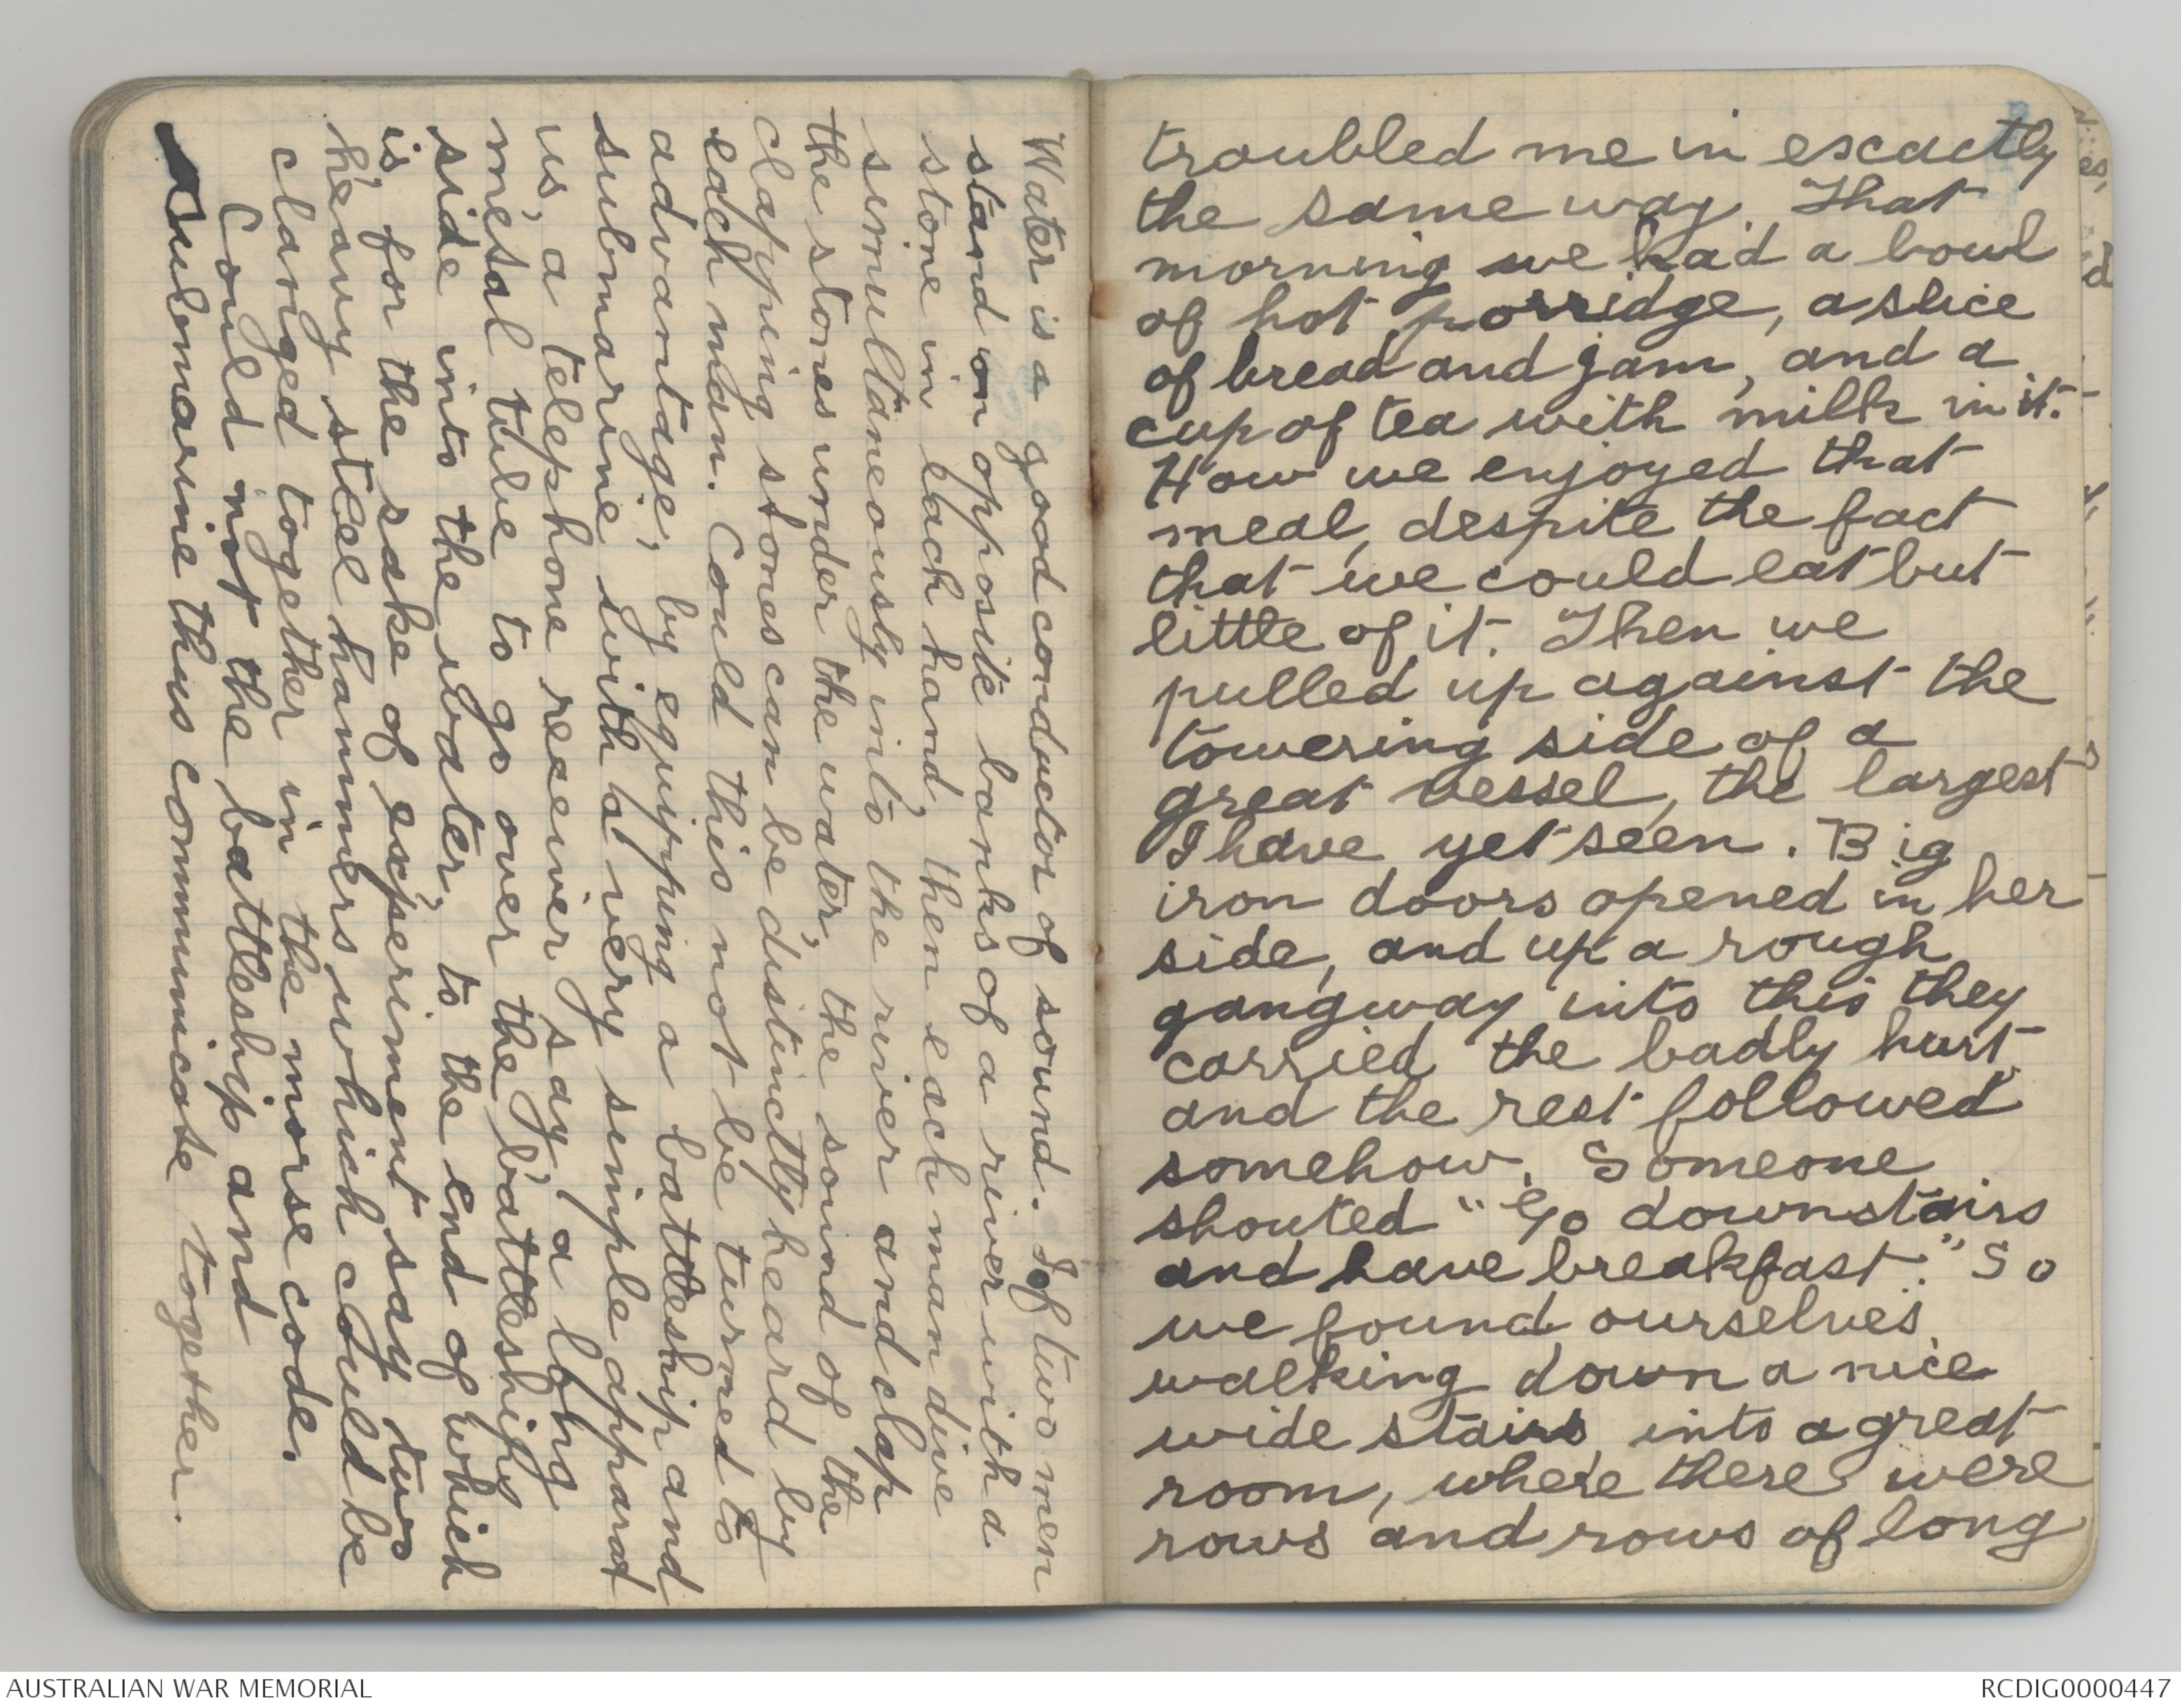 Water is a good conductor of sound. If two men
stand on opposite banks of a river with a
stone in each hand, then each man dive
simultaneously into the river and clap
the stones under the water, the sound of the
clapping stones can be distinctly heard by
each man. Could this not be turned to
advantage, by equipping a battleship and
submarine with a very simple apparat
us, a telephone receiver say, a long
metal tube to go over the battleships
side into the water, to the end of which
is, for the sake of experiment say two
heavy steel hammers which could be
clanged together in the morse code.
Could not the battleship and
submarine thus communicate together.
troubled me in escactly
the same way. That
morning we had a bowl
of hot porridge, a slice
of bread and jam, and a
cup of tea with milk in it.
How we enjoyed that
meal, despite the fact
that we could eat but
little of it. Then we
pulled up against the
towering side of a
great vessel, the largest
I have yet seen. Big
iron doors opened in her
side, and up a rough
gangway into this they
carried the badly hurt
and the rest followed
somehow. Someone
shouted "Go downstairs
and have breakfast." So
we found ourselves
walking down a nice
wide stairs into a great
room, where there were
rows and rows of long
AUSTRALIAN WAR MEMORIAL
RCDIG0000447